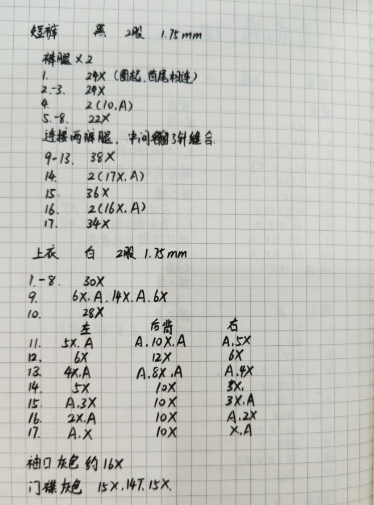 短裤 黑 2股 1.75mm
裤腿×2
1. 24X (圈起, 首尾相连)
2.-3. 24X
4. 2(10X.A)
5.-8. 22X
连接两裤腿, 中间留3针缝合
9-13. 38X
14. 2(17X.A)
15. 36X
16. 2(16X.A)
17. 34X
上衣 白 2股 1.75mm
1.-8. 30X
9. 6X.A.14X.A.6X
10. 28X
左 后背 右
11. 5X.A A.10X.A A.5X
12. 6X 12X 6X
13. 4X.A A.8X.A A.4X
14. 5X 10X 5X.
15. A.3X 10X 3X.A
16. 2X.A 10X A.2X
17. A.X 10X X.A
袖口 灰色 约16X
门襟 灰色 15X.14T.15X.